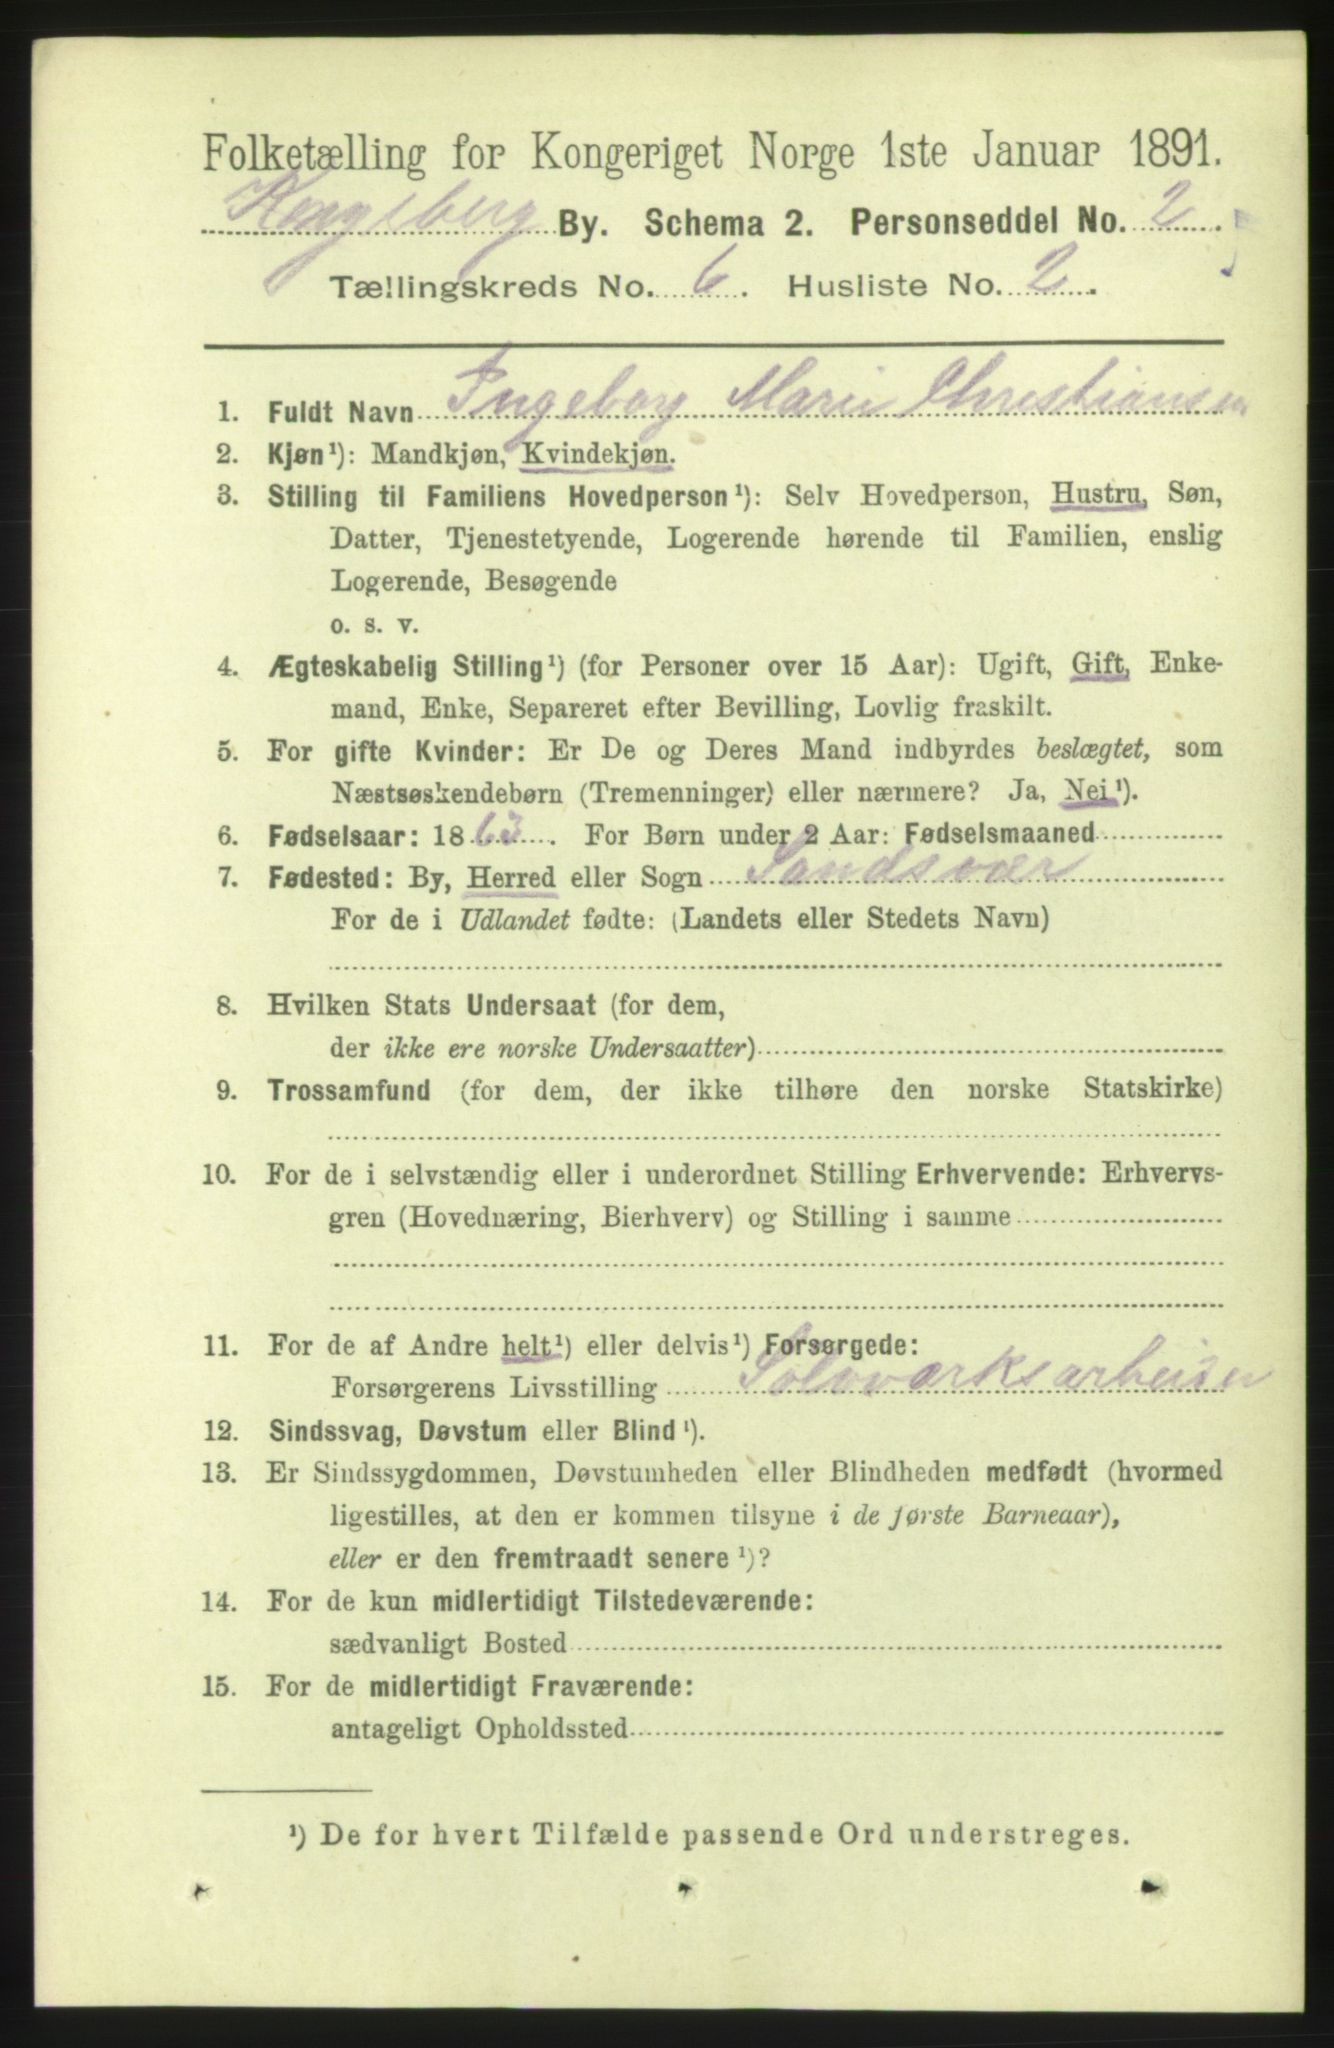 Folketælling for Kongeriget Norge 1ste Januar 1891.
Kongsberg By. Schema 2. Personseddel No. 2
Tællingskreds No. 6. Husliste No. 2.
1. Fuldt Navn Ingeborg Marie Christiansen
2. Kjøn¹): Mandkjøn, Kvindekjøn.
3. Stilling til Familiens Hovedperson¹): Selv Hovedperson, Hustru, Søn,
Datter, Tjenestetyende, Logerende hørende til Familien, enslig
Logerende, Besøgende
o. s. v.
4. Ægteskabelig Stilling¹) (for Personer over 15 Aar): Ugift, Gift, Enke-
mand, Enke, Separeret efter Bevilling, Lovlig fraskilt.
5. For gifte Kvinder: Er De og Deres Mand indbyrdes beslægtet, som
Næstsøskendebørn (Tremenninger) eller nærmere? Ja, Nei¹).
6. Fødselsaar: 1863. For Børn under 2 Aar: Fødselsmaaned
7. Fødested: By, Herred eller Sogn Sandsvær
For de i Udlandet fødte: (Landets eller Stedets Navn)
8. Hvilken Stats Undersaat (for dem,
der ikke ere norske Undersaatter)
9. Trossamfund (for dem, der ikke tilhøre den norske Statskirke)
10. For de i selvstændig eller i underordnet Stilling Erhvervende: Erhvervs-
gren (Hovednæring, Bierhverv) og Stilling i samme
11. For de af Andre helt¹) eller delvis¹) Forsørgede:
Forsørgerens Livsstilling Sølvværksarbeider
12. Sindssvag, Døvstum eller Blind¹).
13. Er Sindssygdommen, Døvstumheden eller Blindheden medfødt (hvormed
ligestilles, at den er kommen tilsyne i de første Barneaar),
eller er den fremtraadt senere¹)?
14. For de kun midlertidigt Tilstedeværende:
sædvanligt Bosted
15. For de midlertidigt Fraværende:
antageligt Opholdssted
¹) De for hvert Tilfælde passende Ord understreges.